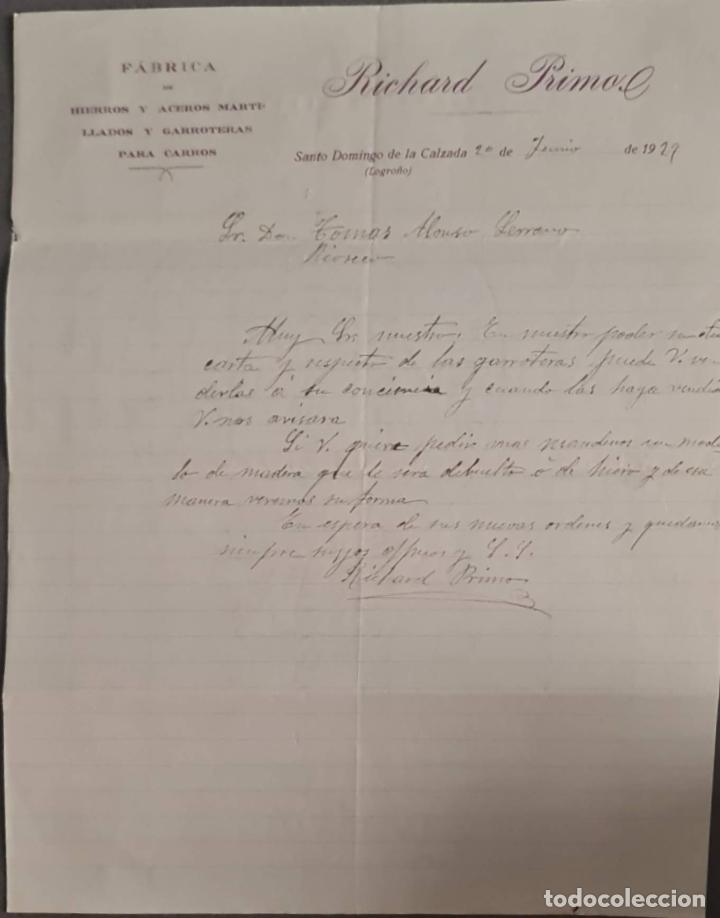 FÁBRICA
DE
HIERROS Y ACEROS MARTI-
LLADOS Y GARROTERAS
PARA CARROS
Richard Primo
Santo Domingo de la Calzada 20 de Junio de 1929
(Logroño)
Sr. Don Tomas Alonso Serrano
Rioseco
Muy Sr. nuestro: En nuestro poder su eta
carta y respecto de las garroteras puede V. ven
derlas á su conciencia y cuando las haya vendido
V. nos avisara
Si V. quiere pedir unas mandenos un mode
lo de madera que le sera debuelto ó de hierro y de esa
manera veremos su forma
En espera de sus nuevas ordenes y quedamos
siempre suyos affmos y S.S.
Richard Primo
todocoleccion